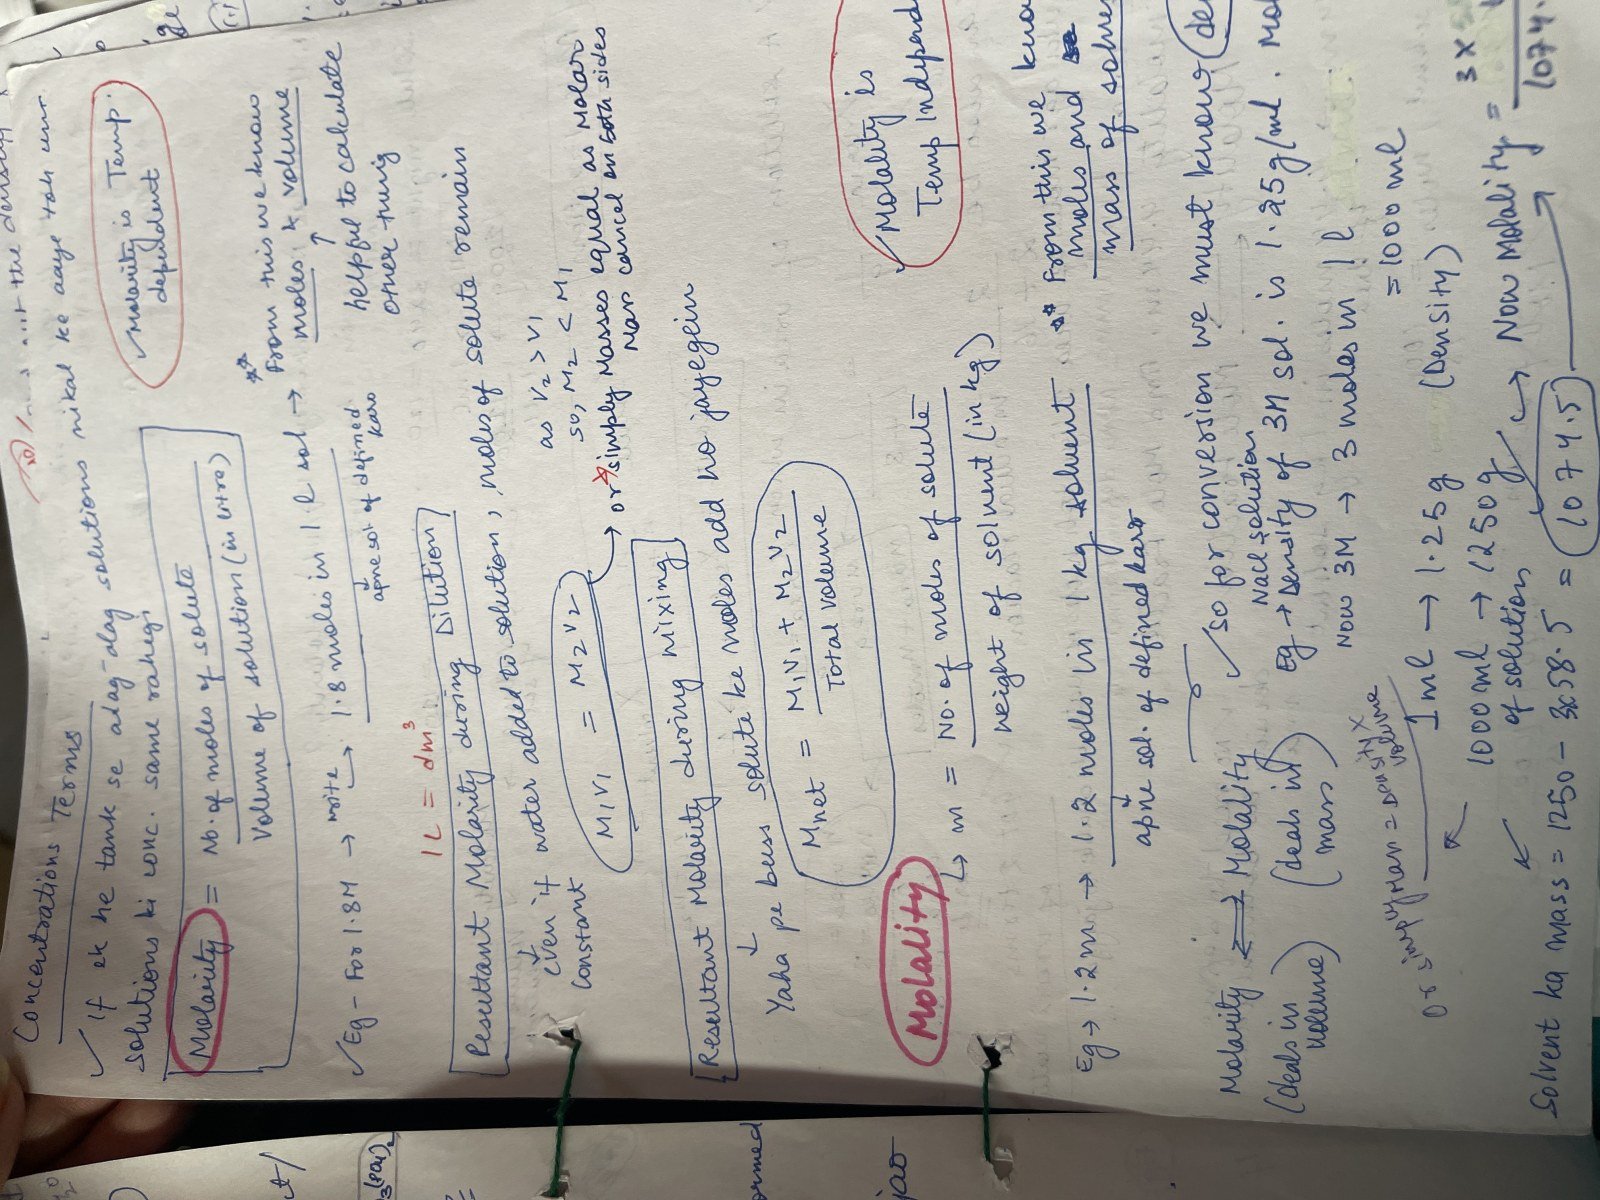 Concentrations Terms
✓ If ek he tank se adag-alag solutions nikal ke aaye toh
solutions ki conc. same rahegi
Molarity = No. of moles of solute
Volume of solution (in litre)
✓ Molarity is Temp.
dependent
✓ Eg - For 1.8M → write → 1.8 moles in 1 l sol →
apne sol. of defined
karo
** From this we know
moles & volume
↑
helpful to calculate
other thing
1L = dm³
Resultant Molarity during Dilution
↓
Even if water added to solution, moles of solute remain
constant
M1V1 = M2V2
as V2 > V1
so, M2 < M1
→ or simply Masses equal as Molar
Mass cancel on both sides
Resultant Molarity during mixing
↓
Yaha pe bass solute ke moles add ho jayegein
Mnet = M1V1 + M2V2
Total volume
Molality
↳ m = No. of moles of solute
Weight of solvent (in kg)
✓ Molality is
Temp Independ
Eg → 1.2 m → 1.2 moles in 1 kg solvent
apne sol. of defined karo
** From this we know
moles and
mass of solve
Molarity ⇌ Molality
(deals in
volume)
(deals in
mass)
✓ So for conversion we must know
NaCl solution
Eg → Density of 3M sol. is 1.25g/ml.
Now 3M → 3 moles in 1 l
= 1000 ml
or simply Mass = Density ×
volume
1 ml → 1.25g (Density)
1000 ml → 1250g
of solution
Solvent ka mass = 1250 - 3×58.5 = 1074.5
→ Now Molality =
1074.